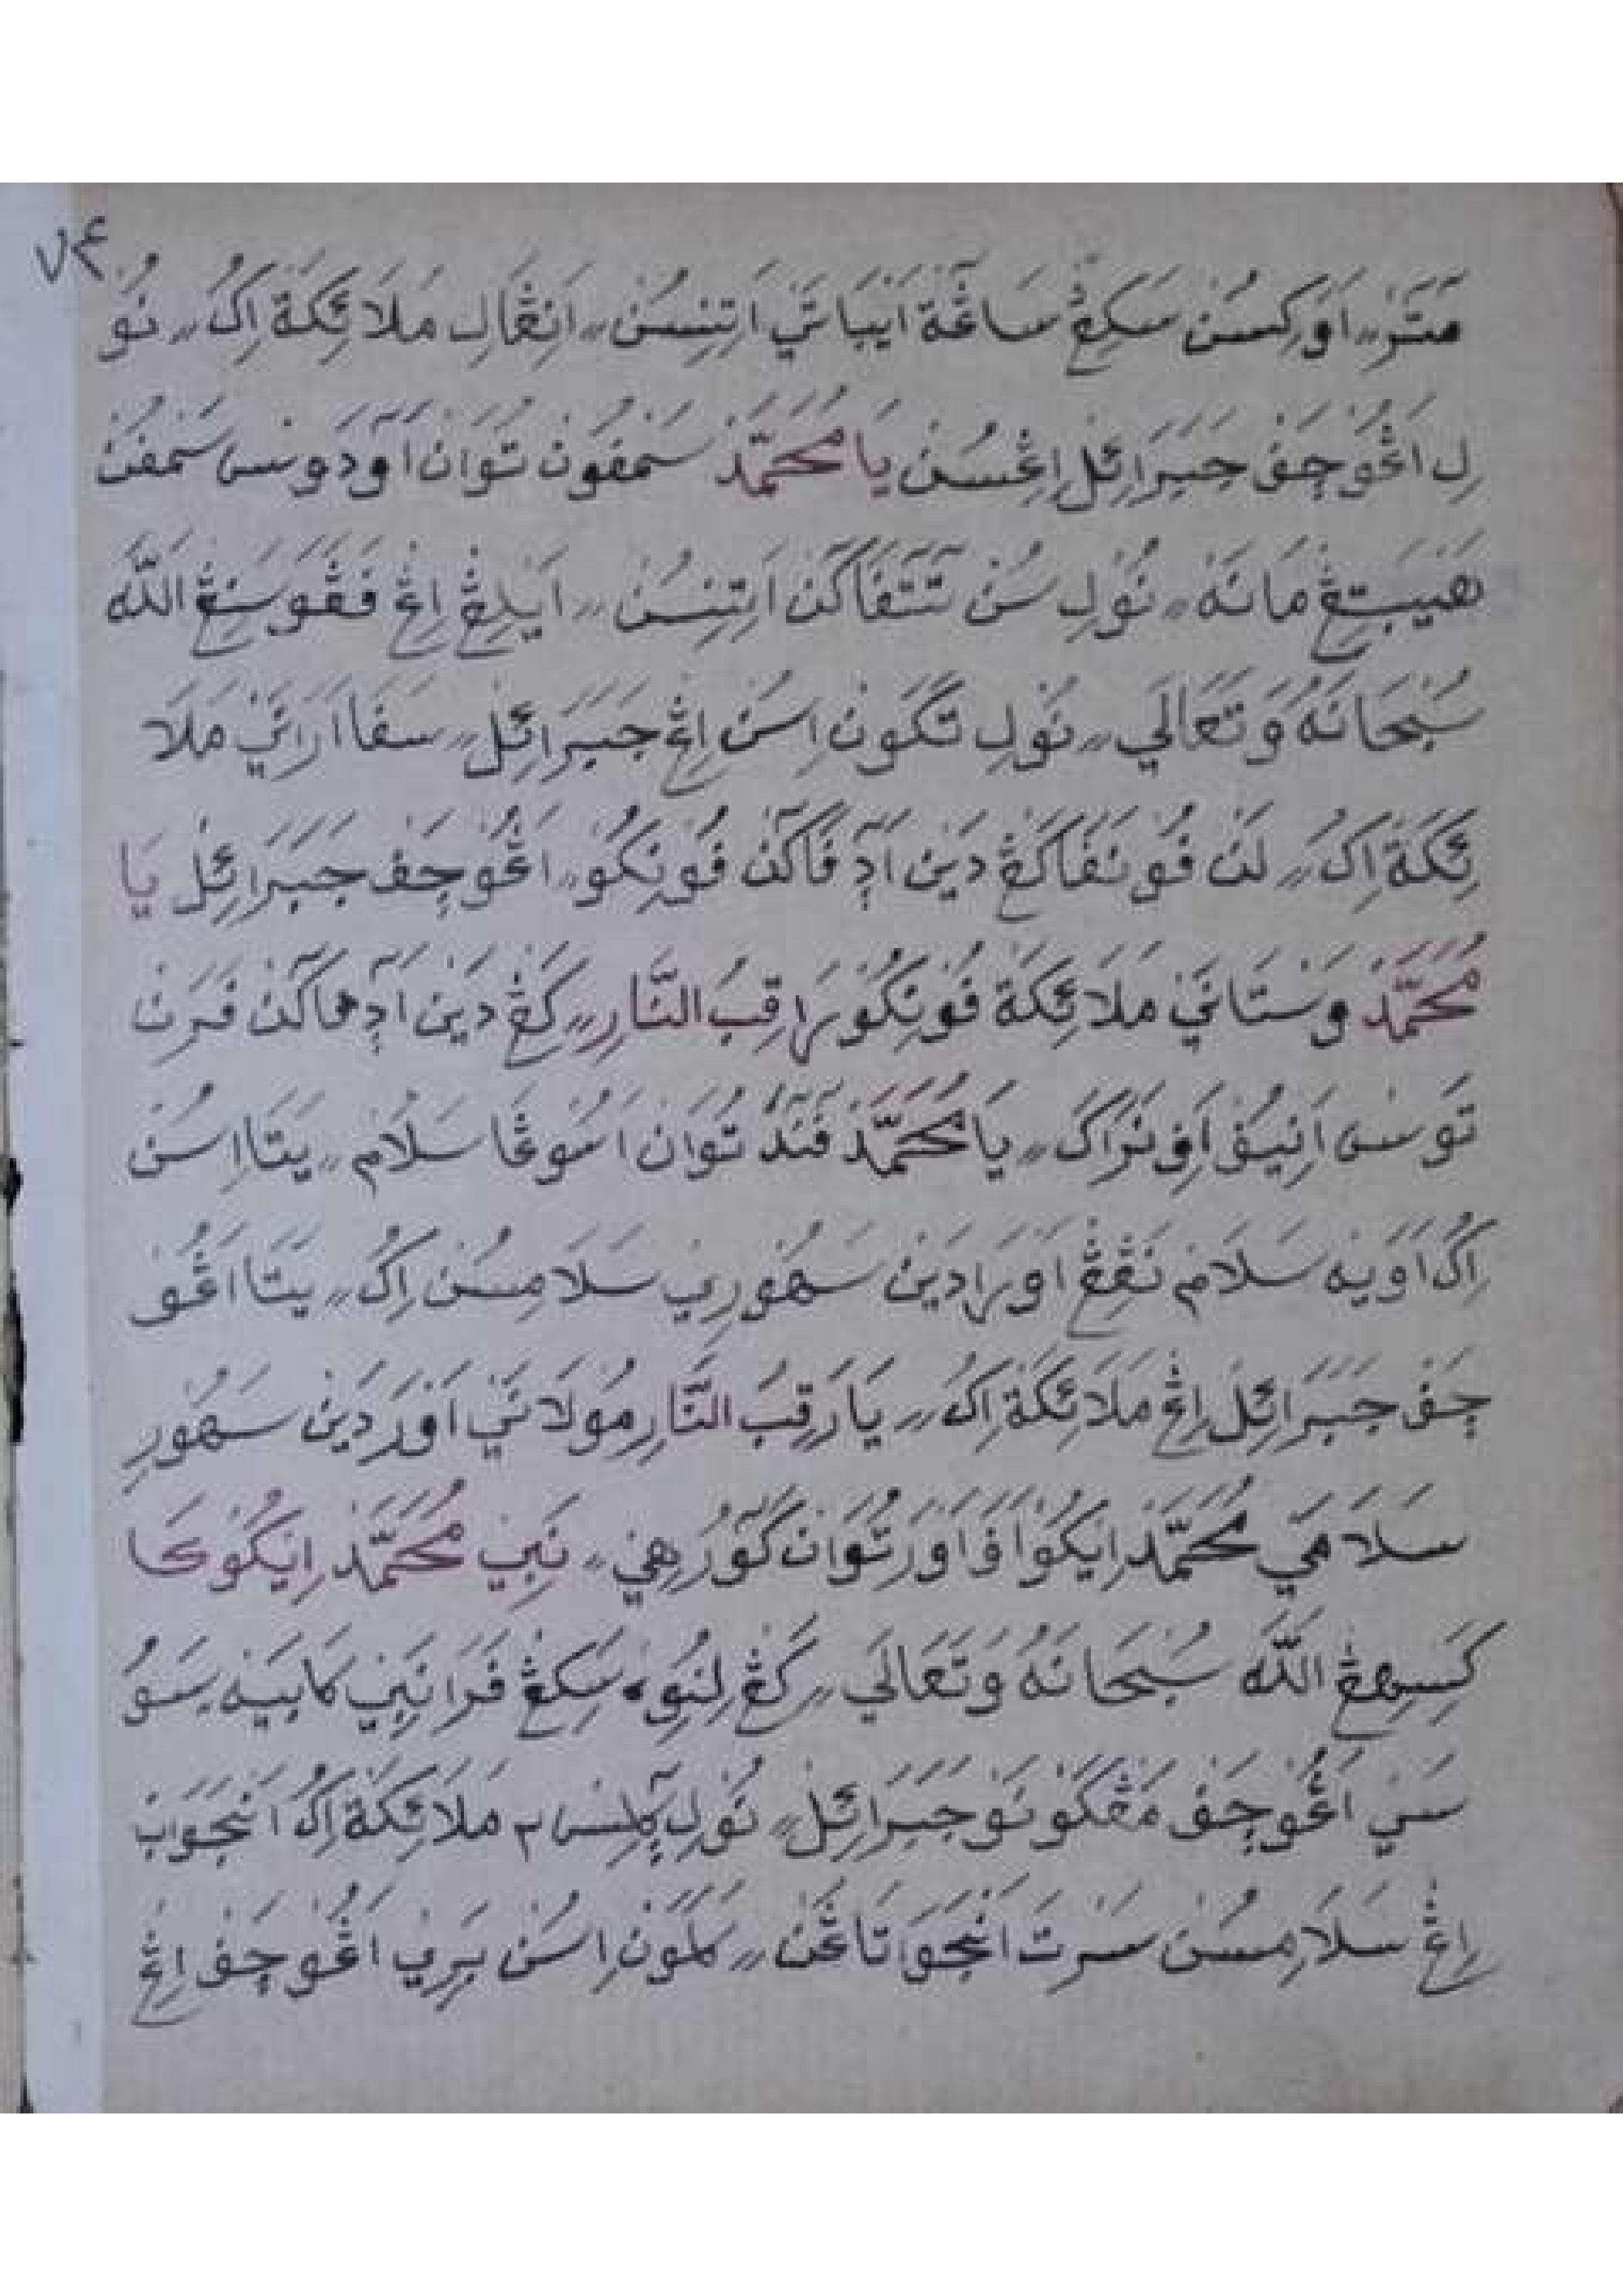 ٧٤
مَتَرَ أَوَكِسُنْ سَكِڠْ سَاڠَةْ أَيْبَاتَيْ أَتِنِسُنْ ؍ أَنِڠَالِ مَلَائِكَةْ اِكُ ؍ نُوْ
لِ اَڠُوْچَفْ جَبَرَائِلْ اِڠْسُنْ يَا مُحَمَّدْ سَمْفُوْنْ تُوَانْ اَوْدَوْسْ سَمْفُنْ
هَيْبَتِڠْ مَانَهْ ؍ نُوْلِ سُنْ تَتَفَاكَنْ اَتِنِسُنْ ؍ اَيْلِڠْ اِڠْ فَڠَوْسَنِڠْ اللّٰه
سُبْحَانَهُ وَتَعَالَي ؍ نُوْلِ تَكَوْنْ اِسُنْ اِڠْ جَبَرَائِلْ ؍ سَفَا اَرَانَيْ مَلَا
ئِكَةْ اِكُ ؍ لَنْ فُوْنَفَا كَڠْ دَيْنْ اَدَفَاكَنْ فُوْنِكُوْ ؍ اَڠُوْچَفْ جَبَرَائِلْ يَا
مُحَمَّدْ وَسْتَانَيْ مَلَائِكَةْ فُوْنِكُوْ رَاقِبُ النَّارِ ؍ كَڠْ دَيْنْ اَدَفَاكَنْ فَرِنْ
تَوْسْ اَنِيُوْفْ اَفِوْ نَرَاكَ ؍ يَا مُحَمَّدْ فَنَدُ تُوَانْ اَسُوْڠَا سَلَامْ ؍ يَتَا اِسُنْ
اِكُ اَوَيْهْ سَلَامْ نَڠِڠْ اَوْرَا دَيْنْ سَهُوْرِيْ سَلَامِسُنْ اِكُ ؍ يَتَا اَڠُوْ
چَفْ جَبَرَائِلْ اِڠْ مَلَائِكَةْ اِكُ ؍ يَا رَقِبُ النَّارِ مُوْلَانَيْ اَوْرَ دَيْنْ سَهُوْرِ
سَلَامَيْ مُحَمَّدْ اِيْكُوْ اَفَا اَوْرَ تُوَانْ كَوْرُهِيْ ؍ نَبِيْ مُحَمَّدْ اِيْكُوْ كَا
كَسِهِڠْ اللّٰه سُبْحَانَهُ وَتَعَالَي ؍ كَڠْ لِنُوِهْ سَكِڠْ فَرَا نَبِيْ كَابَيْهْ سَوُ
سَيْ اَڠُوْچَفْ مَڠْكَوْنَوْ جَبَرَائِلْ ؍ نُوْلِ مَلَائِكَةْ اِكُ اَنْجَوَابْ
اِڠْ سَلَامِسُنْ سَرْتَ اَنْجَوَاتَاڠَنْ ؍ كَلَوْنْ اِسُنْ بَرِيْ اَڠُوْچَفْ اِڠْ